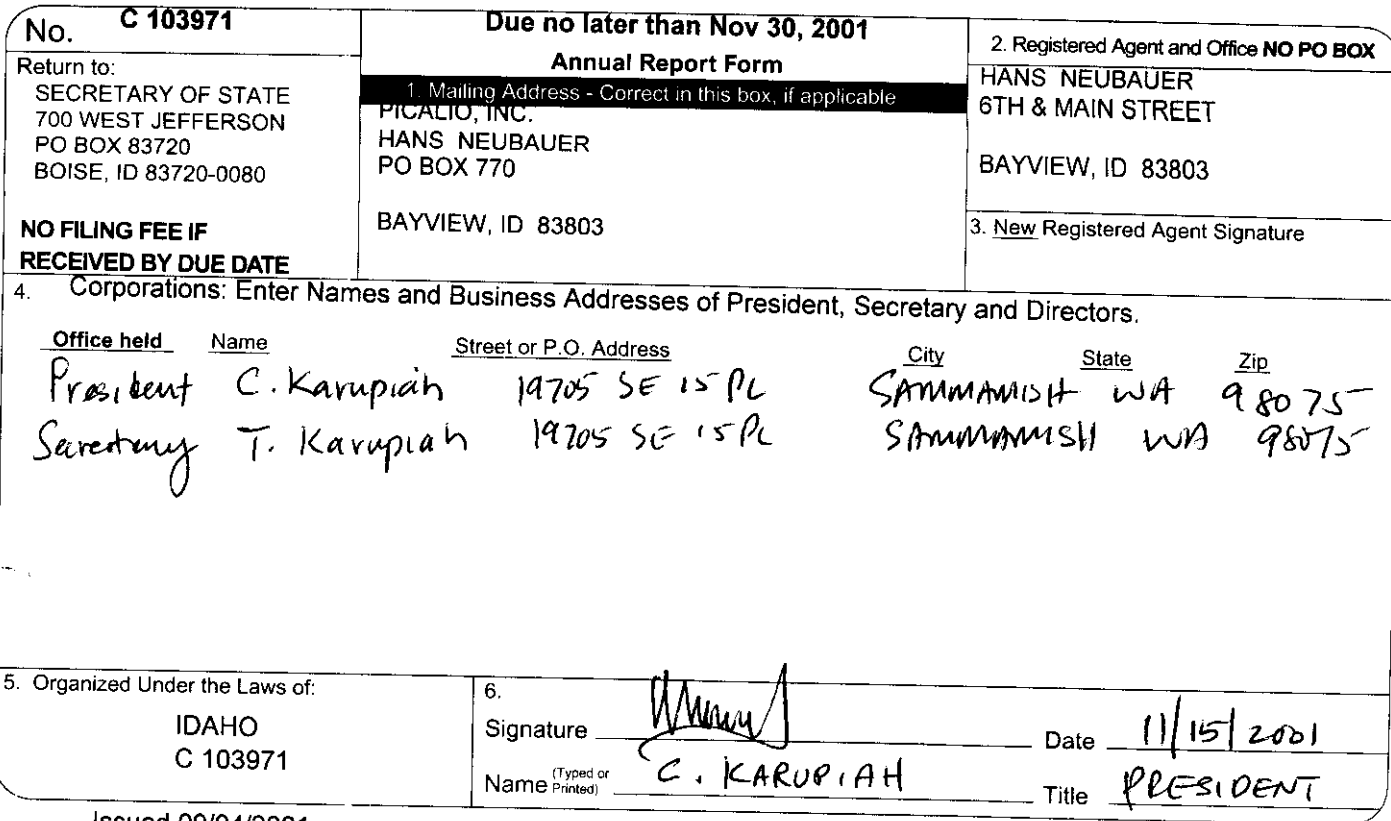 No. C 103971
Return to:
SECRETARY OF STATE
700 WEST JEFFERSON
PO BOX 83720
BOISE, ID 83720-0080
NO FILING FEE IF
RECEIVED BY DUE DATE
Due no later than Nov 30, 2001
Annual Report Form
1. Mailing Address - Correct in this box, if applicable
PICALIO, INC.
HANS NEUBAUER
PO BOX 770
BAYVIEW, ID 83803
2. Registered Agent and Office NO PO BOX
HANS NEUBAUER
6TH & MAIN STREET
BAYVIEW, ID 83803
3. New Registered Agent Signature
4. Corporations: Enter Names and Business Addresses of President, Secretary and Directors.
Office held Name Street or P.O. Address City State Zip
President C. Karupiah 19705 SE 15 PL SAMMAMISH WA 98075
Secretary T. Karupiah 19705 SE 15 PL SAMMAMISH WA 98075
5. Organized Under the Laws of:
IDAHO
C 103971
6.
Signature Date 11/15/2001
Name (Typed or Printed) C. KARUPIAH Title PRESIDENT
Issued 09/04/2001